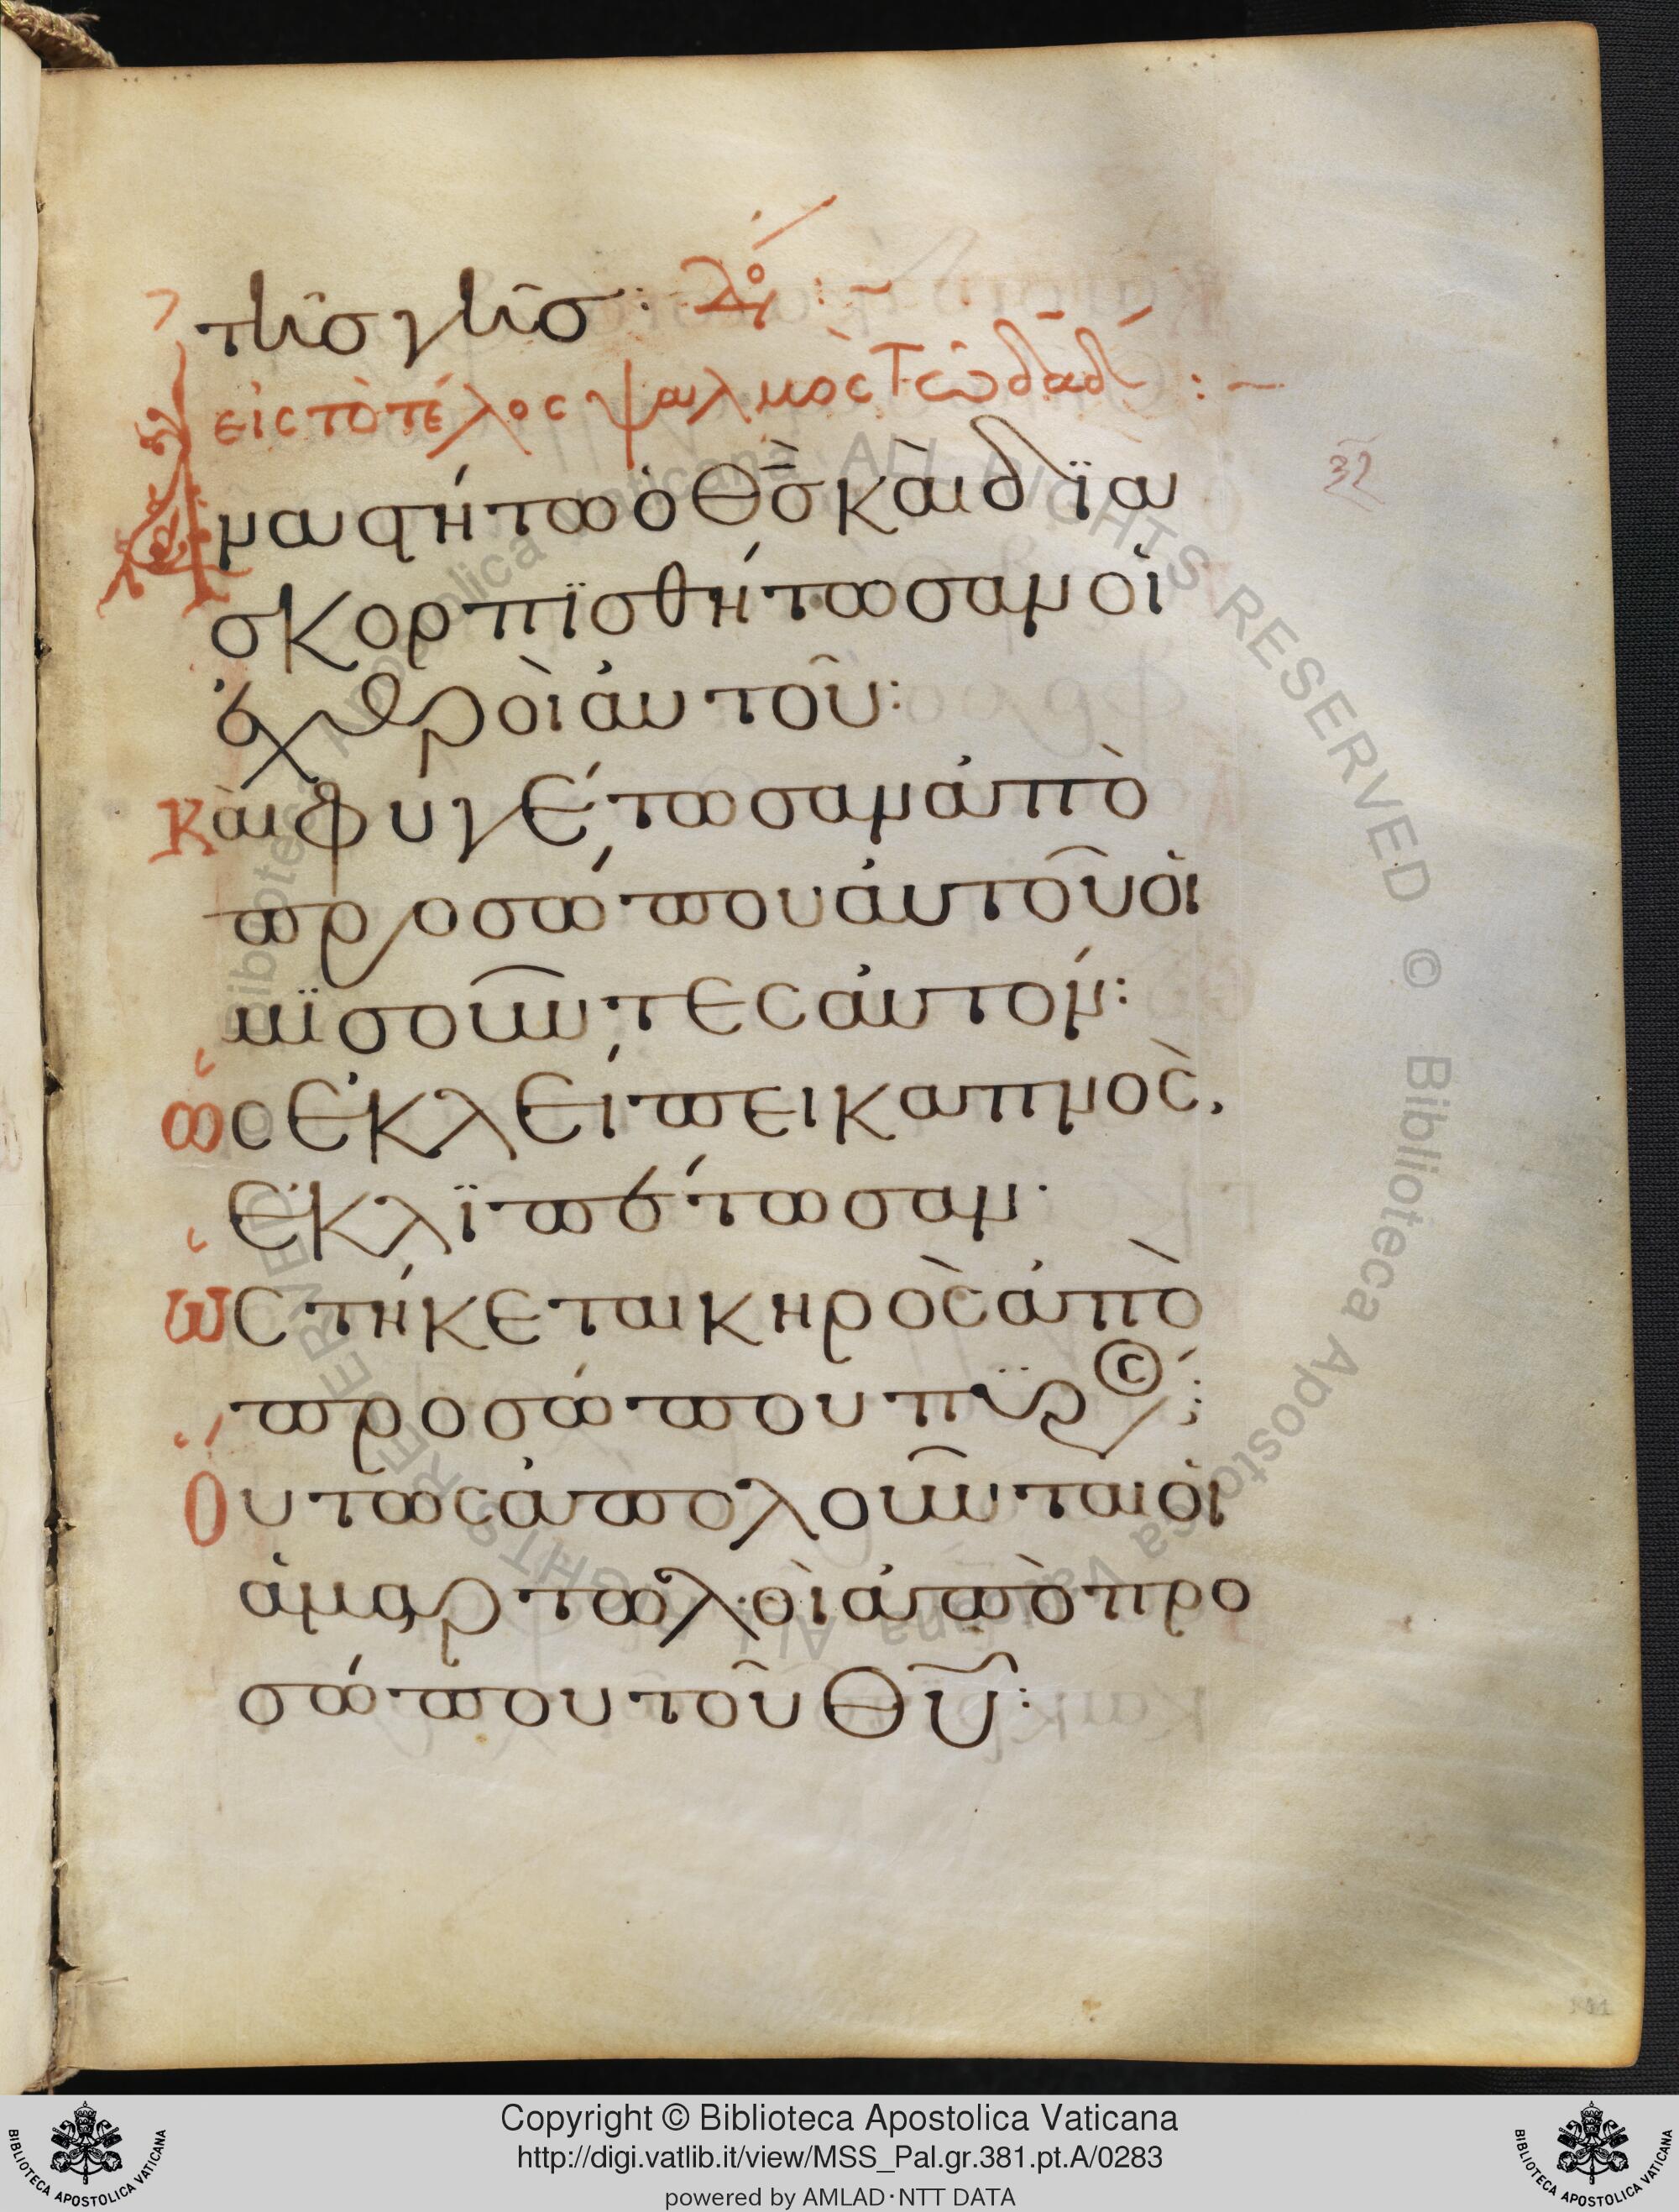 τῆσ γῆσ:
εἰς τὸ τέλος ψαλμὸς Τῶ δᾱδ́:~
Ἀναστήτω ὁ Θ̅ς̅ κὰι δϊα
σκορπϊσθήτωσαν οἱ
ἐχθροὶ ἀυτοῦ:
Κὰι φυγέτωσαν ἀπὸ
προσώπου ἀυτοῦ ὁι
μϊσοῦντες ἀυτόν:
Ὡς ἐκλείπει καπνὸς,
ἐκλϊπέτωσαν·
Ὡς τήκεται κηρὸς ἀπὸ
προσώπου πϋρός:
Ὅυτως ἀπολοῦνται ὁι
ἁμαρτωλοὶ ἀπὸ προ
σώπου τοῦ Θ̅υ̅:
Copyright © Biblioteca Apostolica Vaticana
http://digi.vatlib.it/view/MSS_Pal.gr.381.pt.A/0283
powered by AMLAD·NTT DATA
BIBLIOTECA APOSTOLICA VATICANA
BIBLIOTECA APOSTOLICA VATICANA